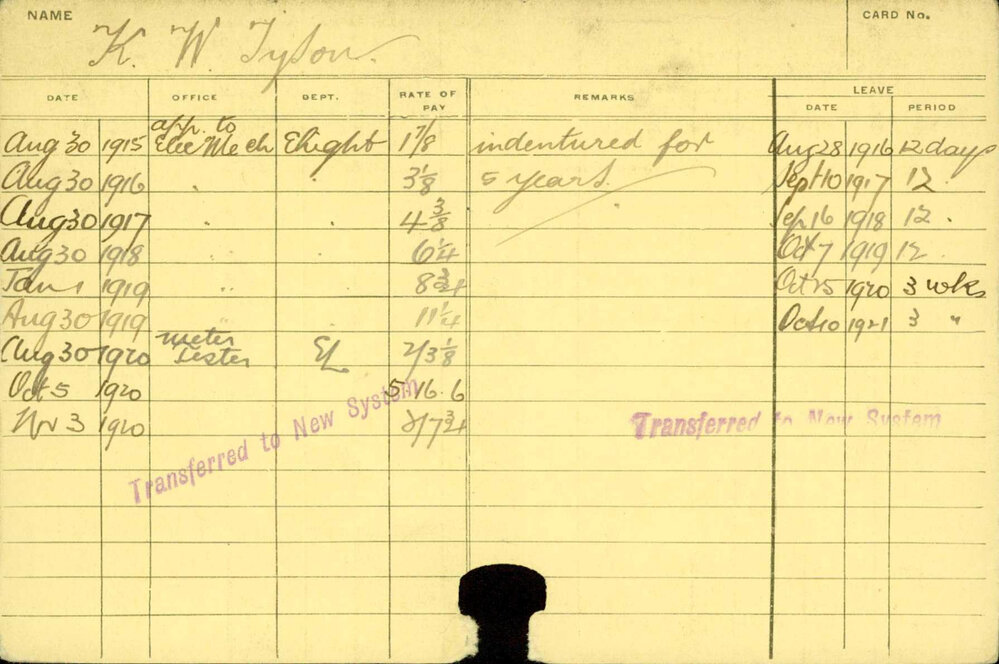 NAME
CARD No.
K. W. Tyson.
DATE OFFICE DEPT. RATE OF PAY REMARKS LEAVE
DATE PERIOD
app. to
Aug 30 1915 Elec Mech ELight 1 7/8 indentured for Aug 28 1916 12 days
Aug 30 1916 " " 3 1/8 5 years. Sept 10 1917 12 "
Aug 30 1917 " " 4 3/8 Sep 16 1918 12 "
Aug 30 1918 " " 6 1/4 Oct 7 1919 12 "
Jan 1 1919 " " 8 3/4 Oct 25 1920 3 wks
Aug 30 1919 " 11 1/4 Oct 10 1921 3 "
meter
Aug 30 1920 Tester EL 2/3 1/8
Oct 5 1920 5/16.6
Nov 3 1920 2/7 3/4
Transferred to New System
Transferred to New System